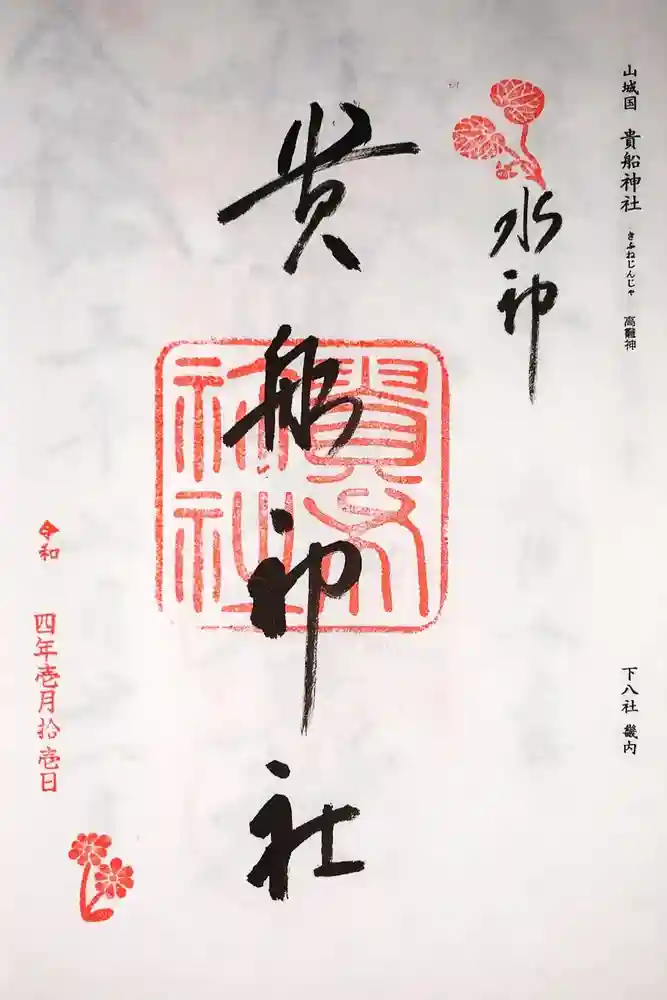 山城国 貴船神社 きふねじんじゃ 高龗神
下八社 畿内
水神
貴船神社
令和
四年壱月拾壱日